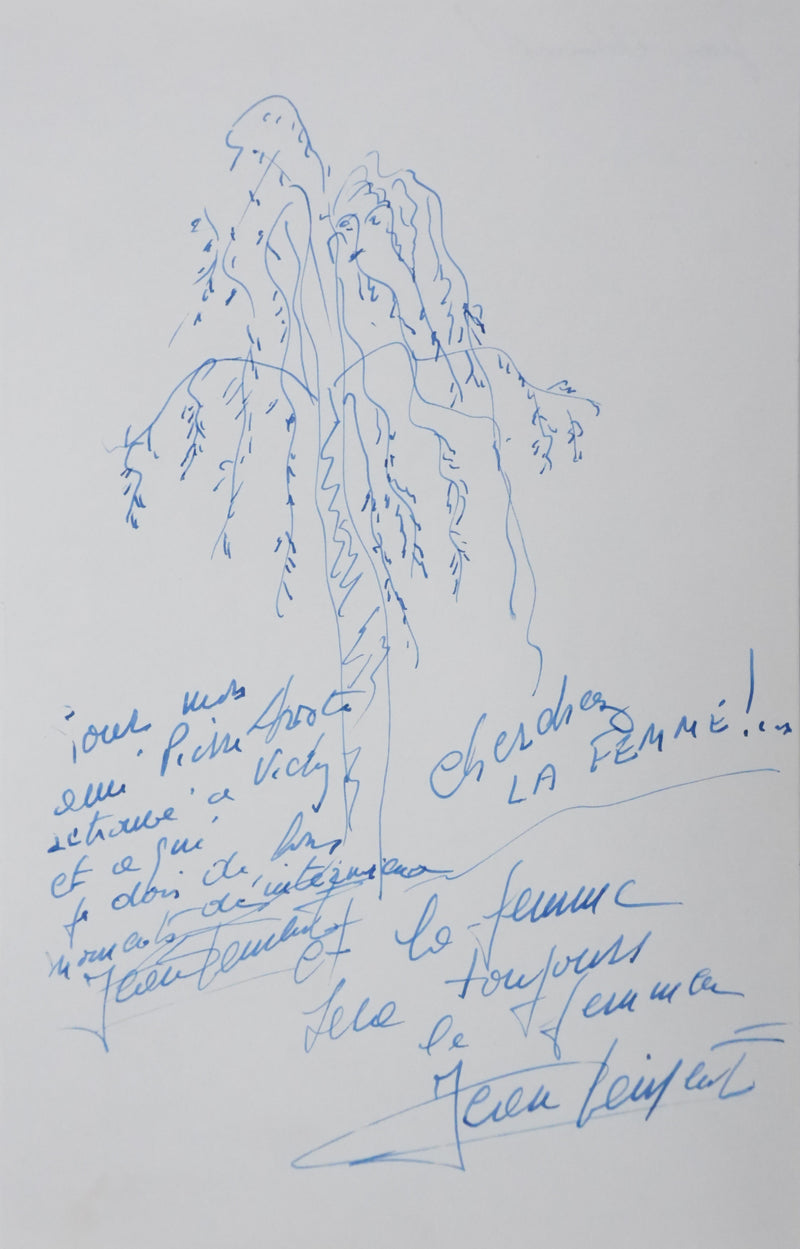 Pour mon
ami Pierre
retrouvé à Vichy
et à qui
je dois de bons
moments
Jean
cherchez
LA FEMME!...
et la femme
sera toujours
la femme
Jean